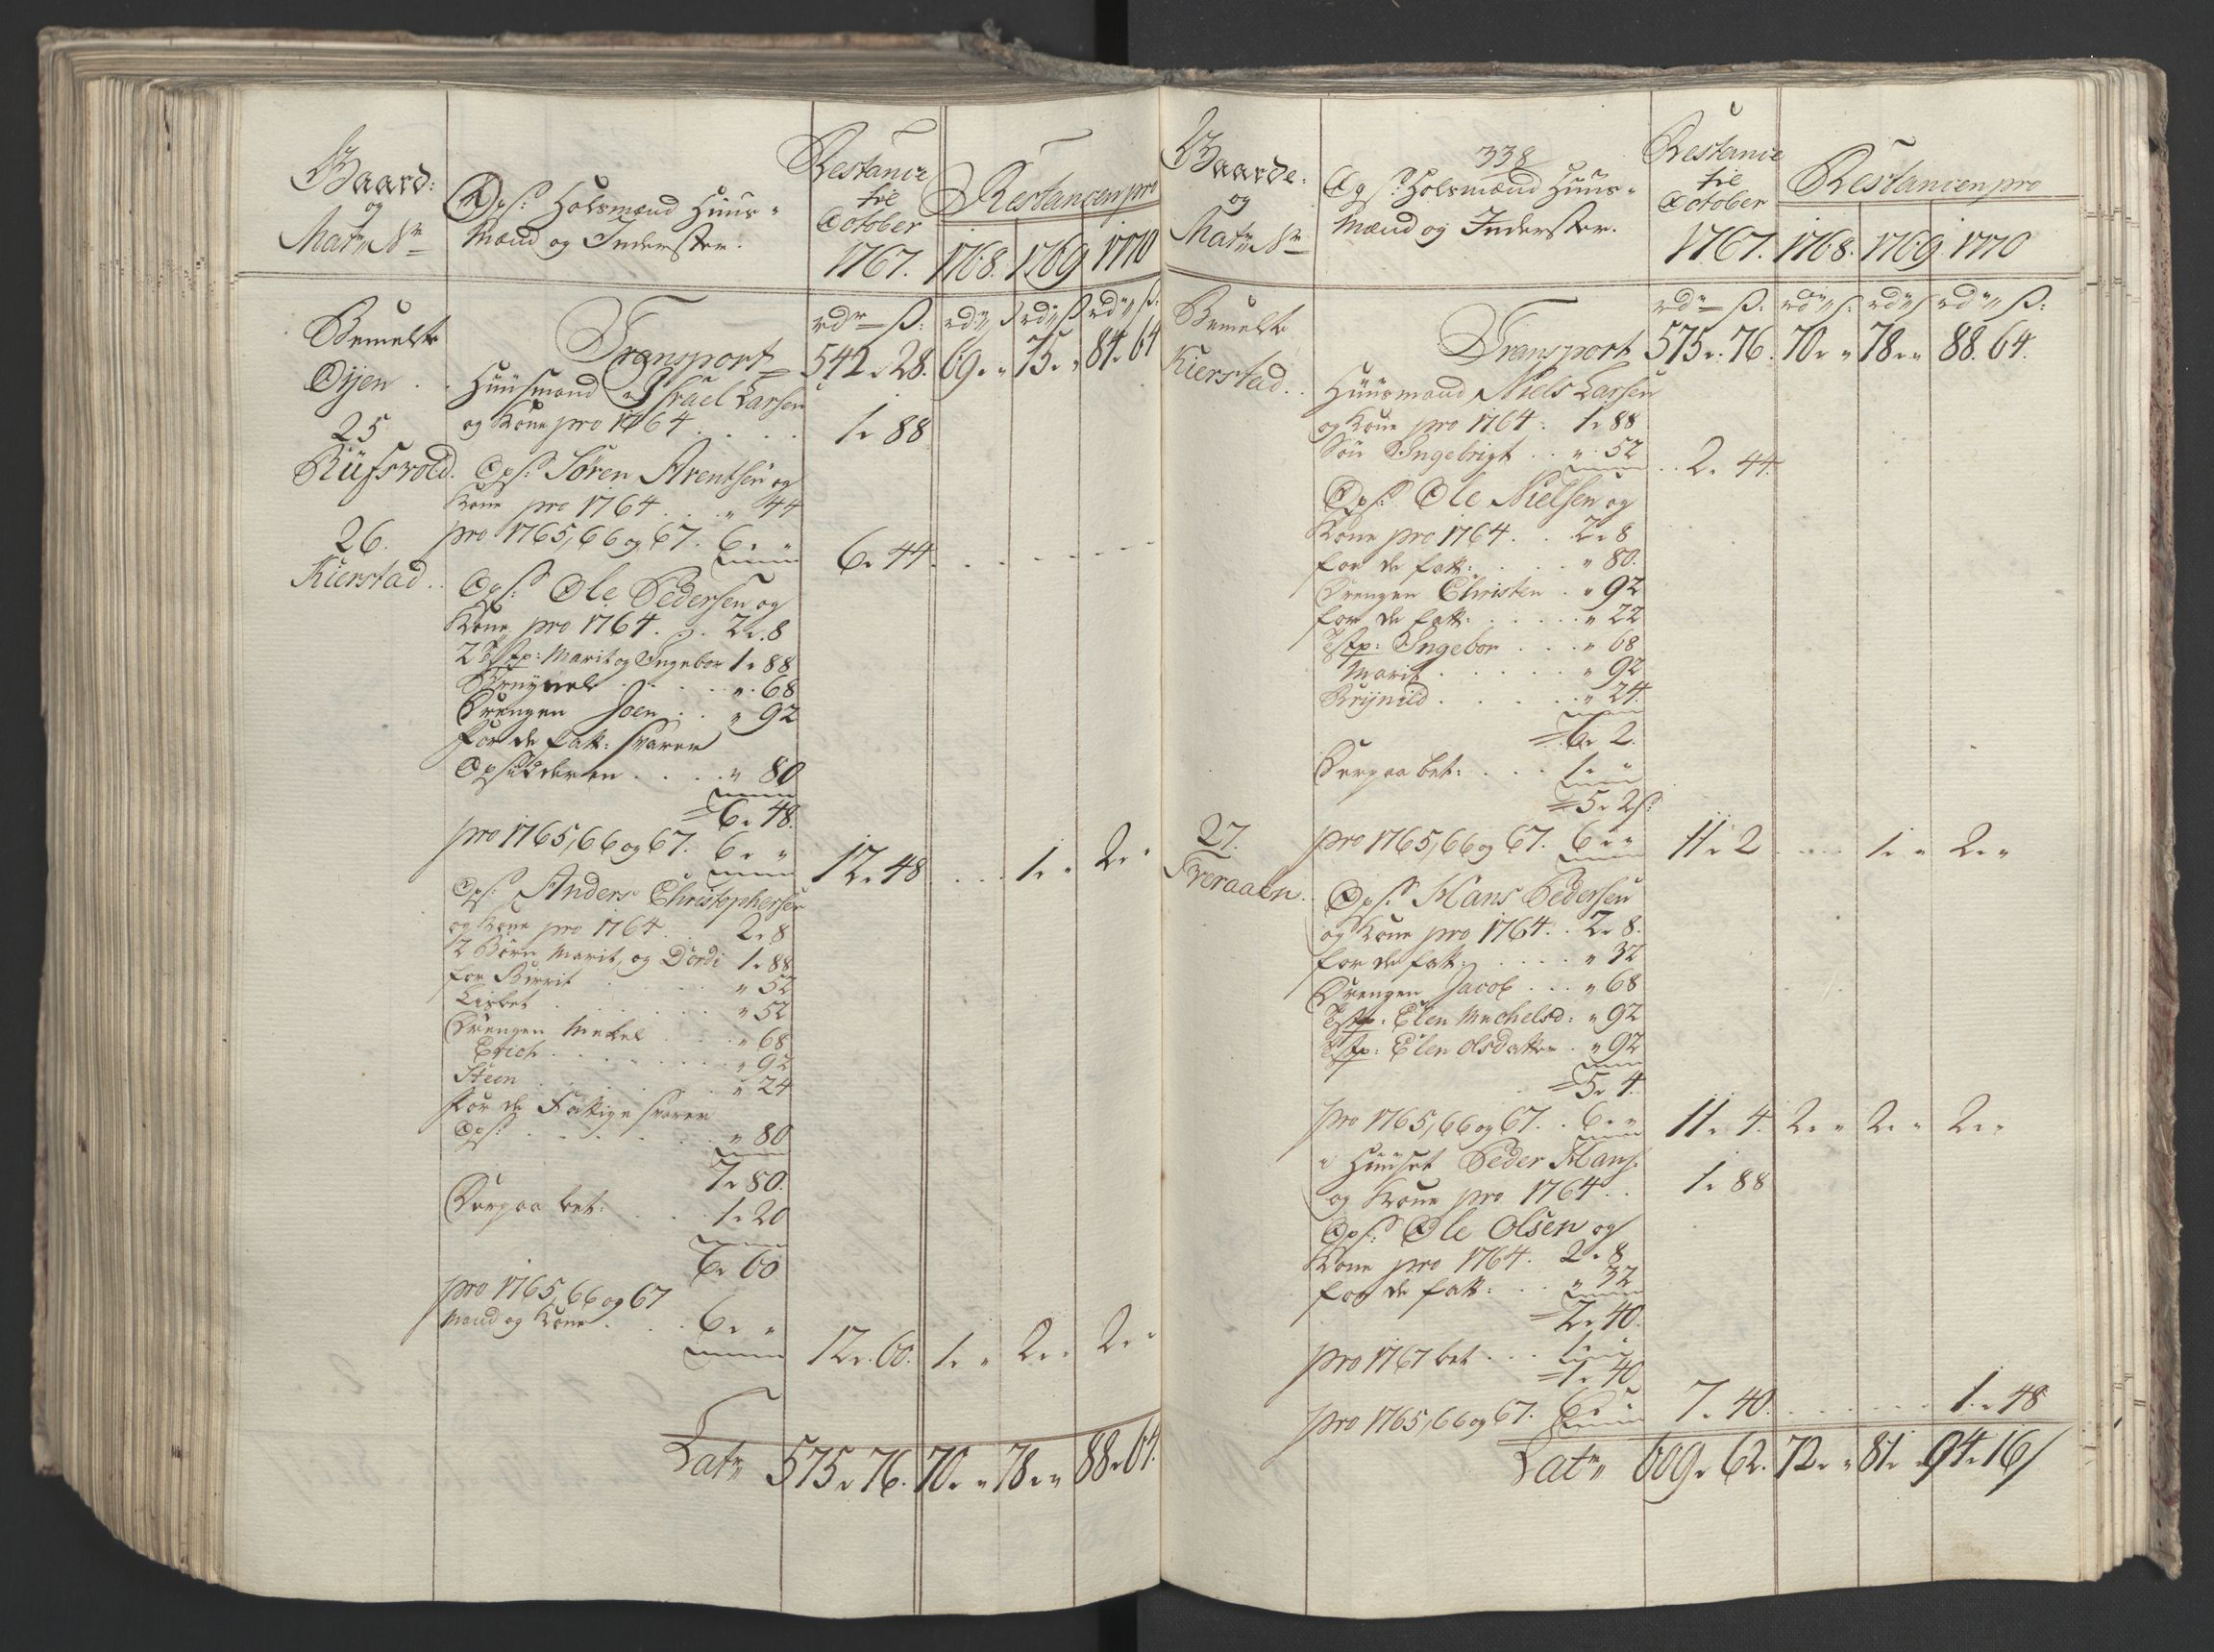 Gaard:
og
Matr. No
Ops: Holsmænd Huus-
mænd og Inderster.
Restance
til
October
1767.
Restancen pro
1768. 1769 1770
rdr ß: rdr ß rdr ß rdr ß:
Bemelte
Øyen
Transport 542. 28. 69. " 75. " 84. 64
Huusmand Israel Larsen
og Kone pro 1764 . . . . 1. 88
25
Rüfsvold.
Ops: Sören Arentsen og
Kone pro 1764 . . " 44
pro 1765, 66 og 67. 6. " 6. 44.
26.
Kierstad . .
Ops: Ole Pedersen og
Kone pro 1764 . . 2. 8
2 Tstp: Marit og Ingebor 1. 88
. . . . ". 68
Drengen Joen . . . " 92
for de fatt: svarer
Opsidderen . . . . " 80
6. 48.
pro 1765, 66 og 67. 6. " 12. 48 . . . 1. " 2. "
Ops: Anders Christophersen
og Kone pro 1764 . . 2. 8
2 Börn Marit, og Dordi 1. 88
for Birrit . . . " 52
Lisbet . . . . " 52
Drengen Mekel . . . " 68
Erich . . . . . " 92
Steen . . . . . " 24
for de Fattige svarer
Ops: . . . . . " 80
7. 80.
Derpaa bet: . . . 1. 20
6. 60
pro 1765, 66 og 67
Mand og Kone . . . 6. " 12. 60. 1. " 2. " 2. "
Latr 575. 76. 70. " 78. " 88. 64.
338
Gaarde.
og
Matr. No
Ops: Holsmænd Huus-
mænd og Inderster.
Restance
til
October
1767.
Restancen pro
1768. 1769. 1770
rdr ß: rdr ß: rdr ß rdr ß:
Bemelte
Kierstad . .
Transport 575. 76. 70. " 78. " 88. 64.
Huusmand Niels Larsen
og Kone pro 1764 . 1. 88
Sön Ingebrigt . . ". 52 . . 2. 44.
Ops: Ole Nielsen og
Kone pro 1764 . . 2. 8
for de fatt: . . . . " 80.
Drengen Christen . " 92
for de fatt: . . . . . " 22
Tstp: Ingebor . . . " 68
Marit . . . . . " 92
Brynild . . . . . " 24.
6. 2.
Derpaa bet: . . . 1. "
5. 2 ß:
pro 1765, 66 og 67. 6. " 11. 2 . . . 1. " 2. "
27.
Sveraaen.
Ops: Hans Pedersen
og Kone pro 1764 . . 2. 8.
for de fatt: . . . . " 32
Drengen Jacob . . . " 68
Tstp: Elen Mechelsd: " 92
Tstp: Elen Olsdatter . " 92
5. 4.
pro 1765, 66 og 67. . 6. " 11. 4. 2. " 2. " 2. "
i Huuset Peder Hans:
og Kone pro 1764 . . 1. 88
Ops: Ole Olsen og
Kone pro 1764. 2. 8
for de fatt: . . " 32
2. 40.
pro 1767 bet . . . 1. "
1. 40
pro 1765, 66 og 67. 6. " 7. 40. . . . . . . 1. 48
Latr 609. 62. 72. " 81. " 94. 16/